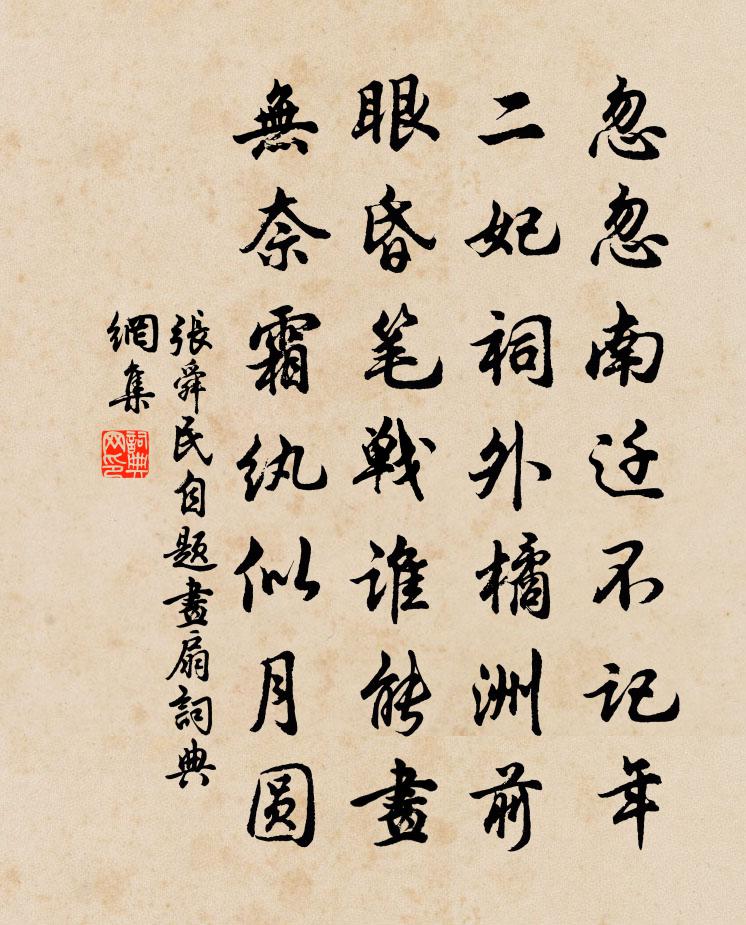 忽忽南迁不记年
二妃祠外橘洲前
眼昏笔戰谁能畫
無奈霜纨似月圆
張舜民自题畫扇詞典
網集
詞典
网印